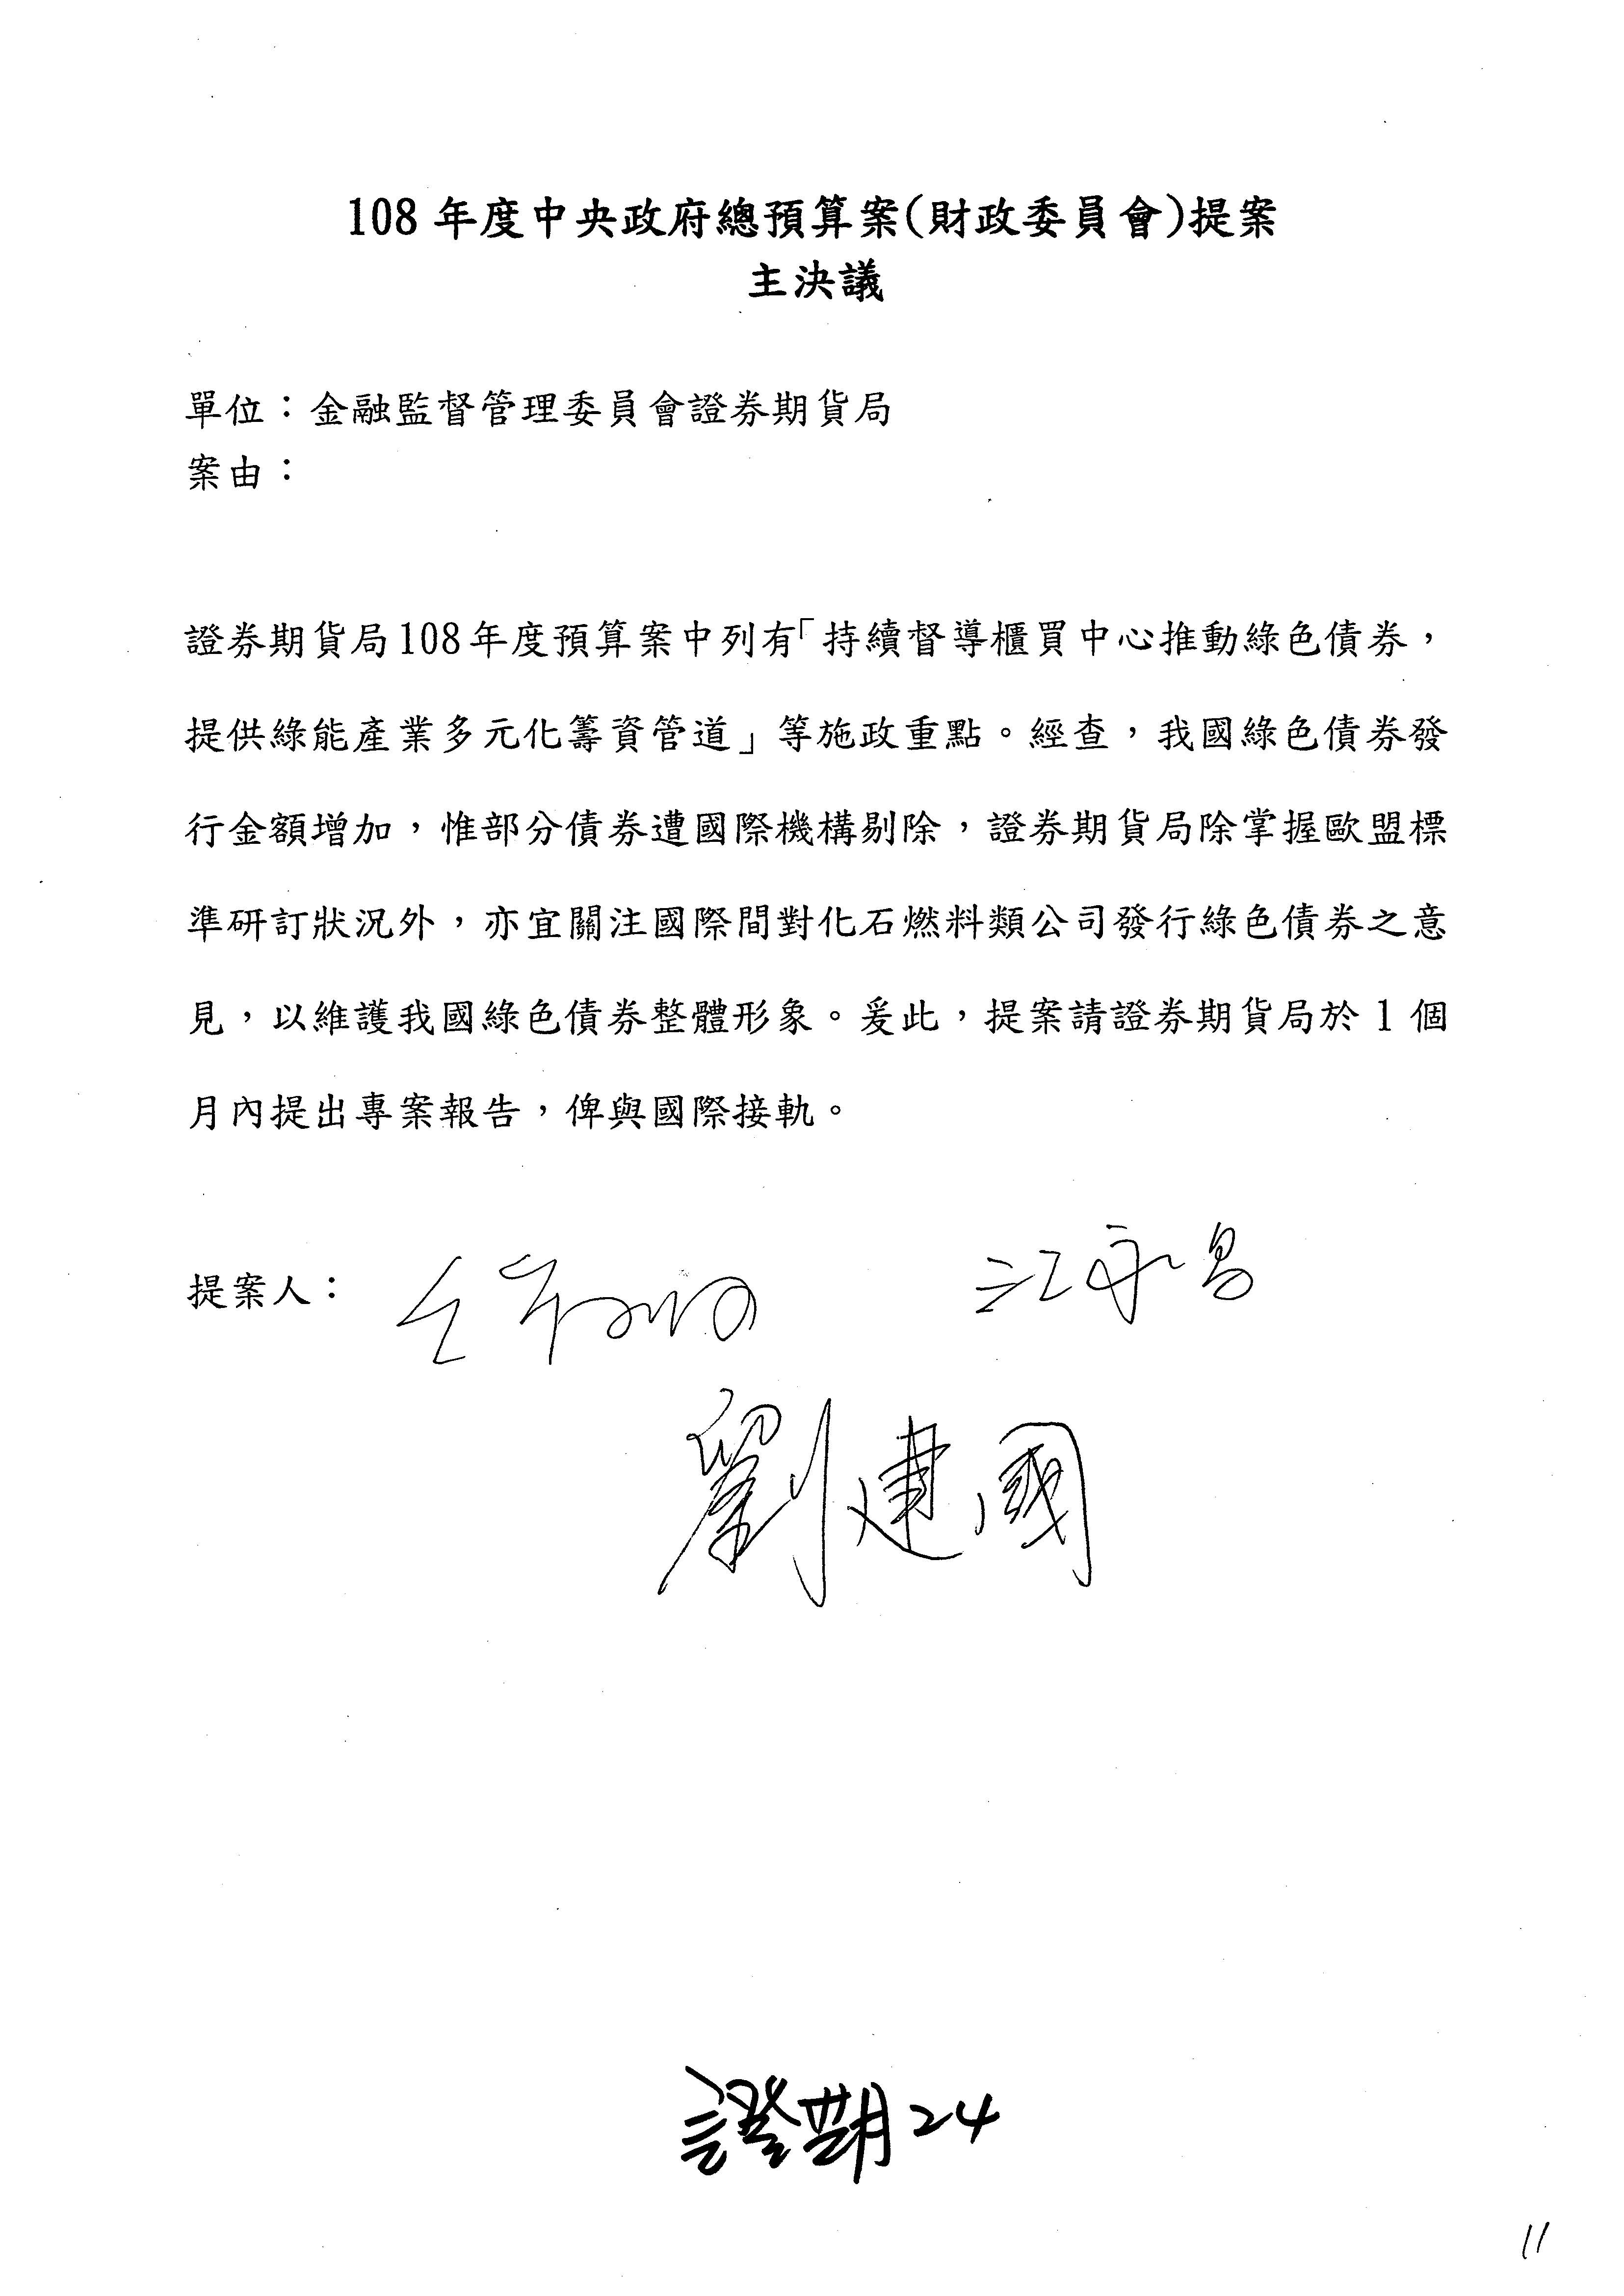 108 年度中央政府總預算案(財政委員會)提案
主決議
單位：金融監督管理委員會證券期貨局
案由：
證券期貨局108年度預算案中列有「持續督導櫃買中心推動綠色債券，
提供綠能產業多元化籌資管道」等施政重點。經查，我國綠色債券發
行金額增加，惟部分債券遭國際機構剔除，證券期貨局除掌握歐盟標
準研訂狀況外，亦宜關注國際間對化石燃料類公司發行綠色債券之意
見，以維護我國綠色債券整體形象。爰此，提案請證券期貨局於 1 個
月內提出專案報告，俾與國際接軌。
提案人：
江永昌
劉建國
證期24
11